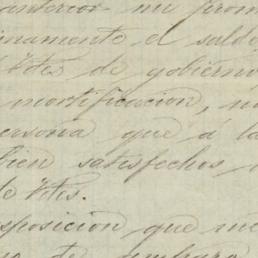 anterior mi prom
inamente el sald
Vtes de gobierno
mortificacion, n
ersona que á la
bien satisfechos
de Vtes.
sposicion que me